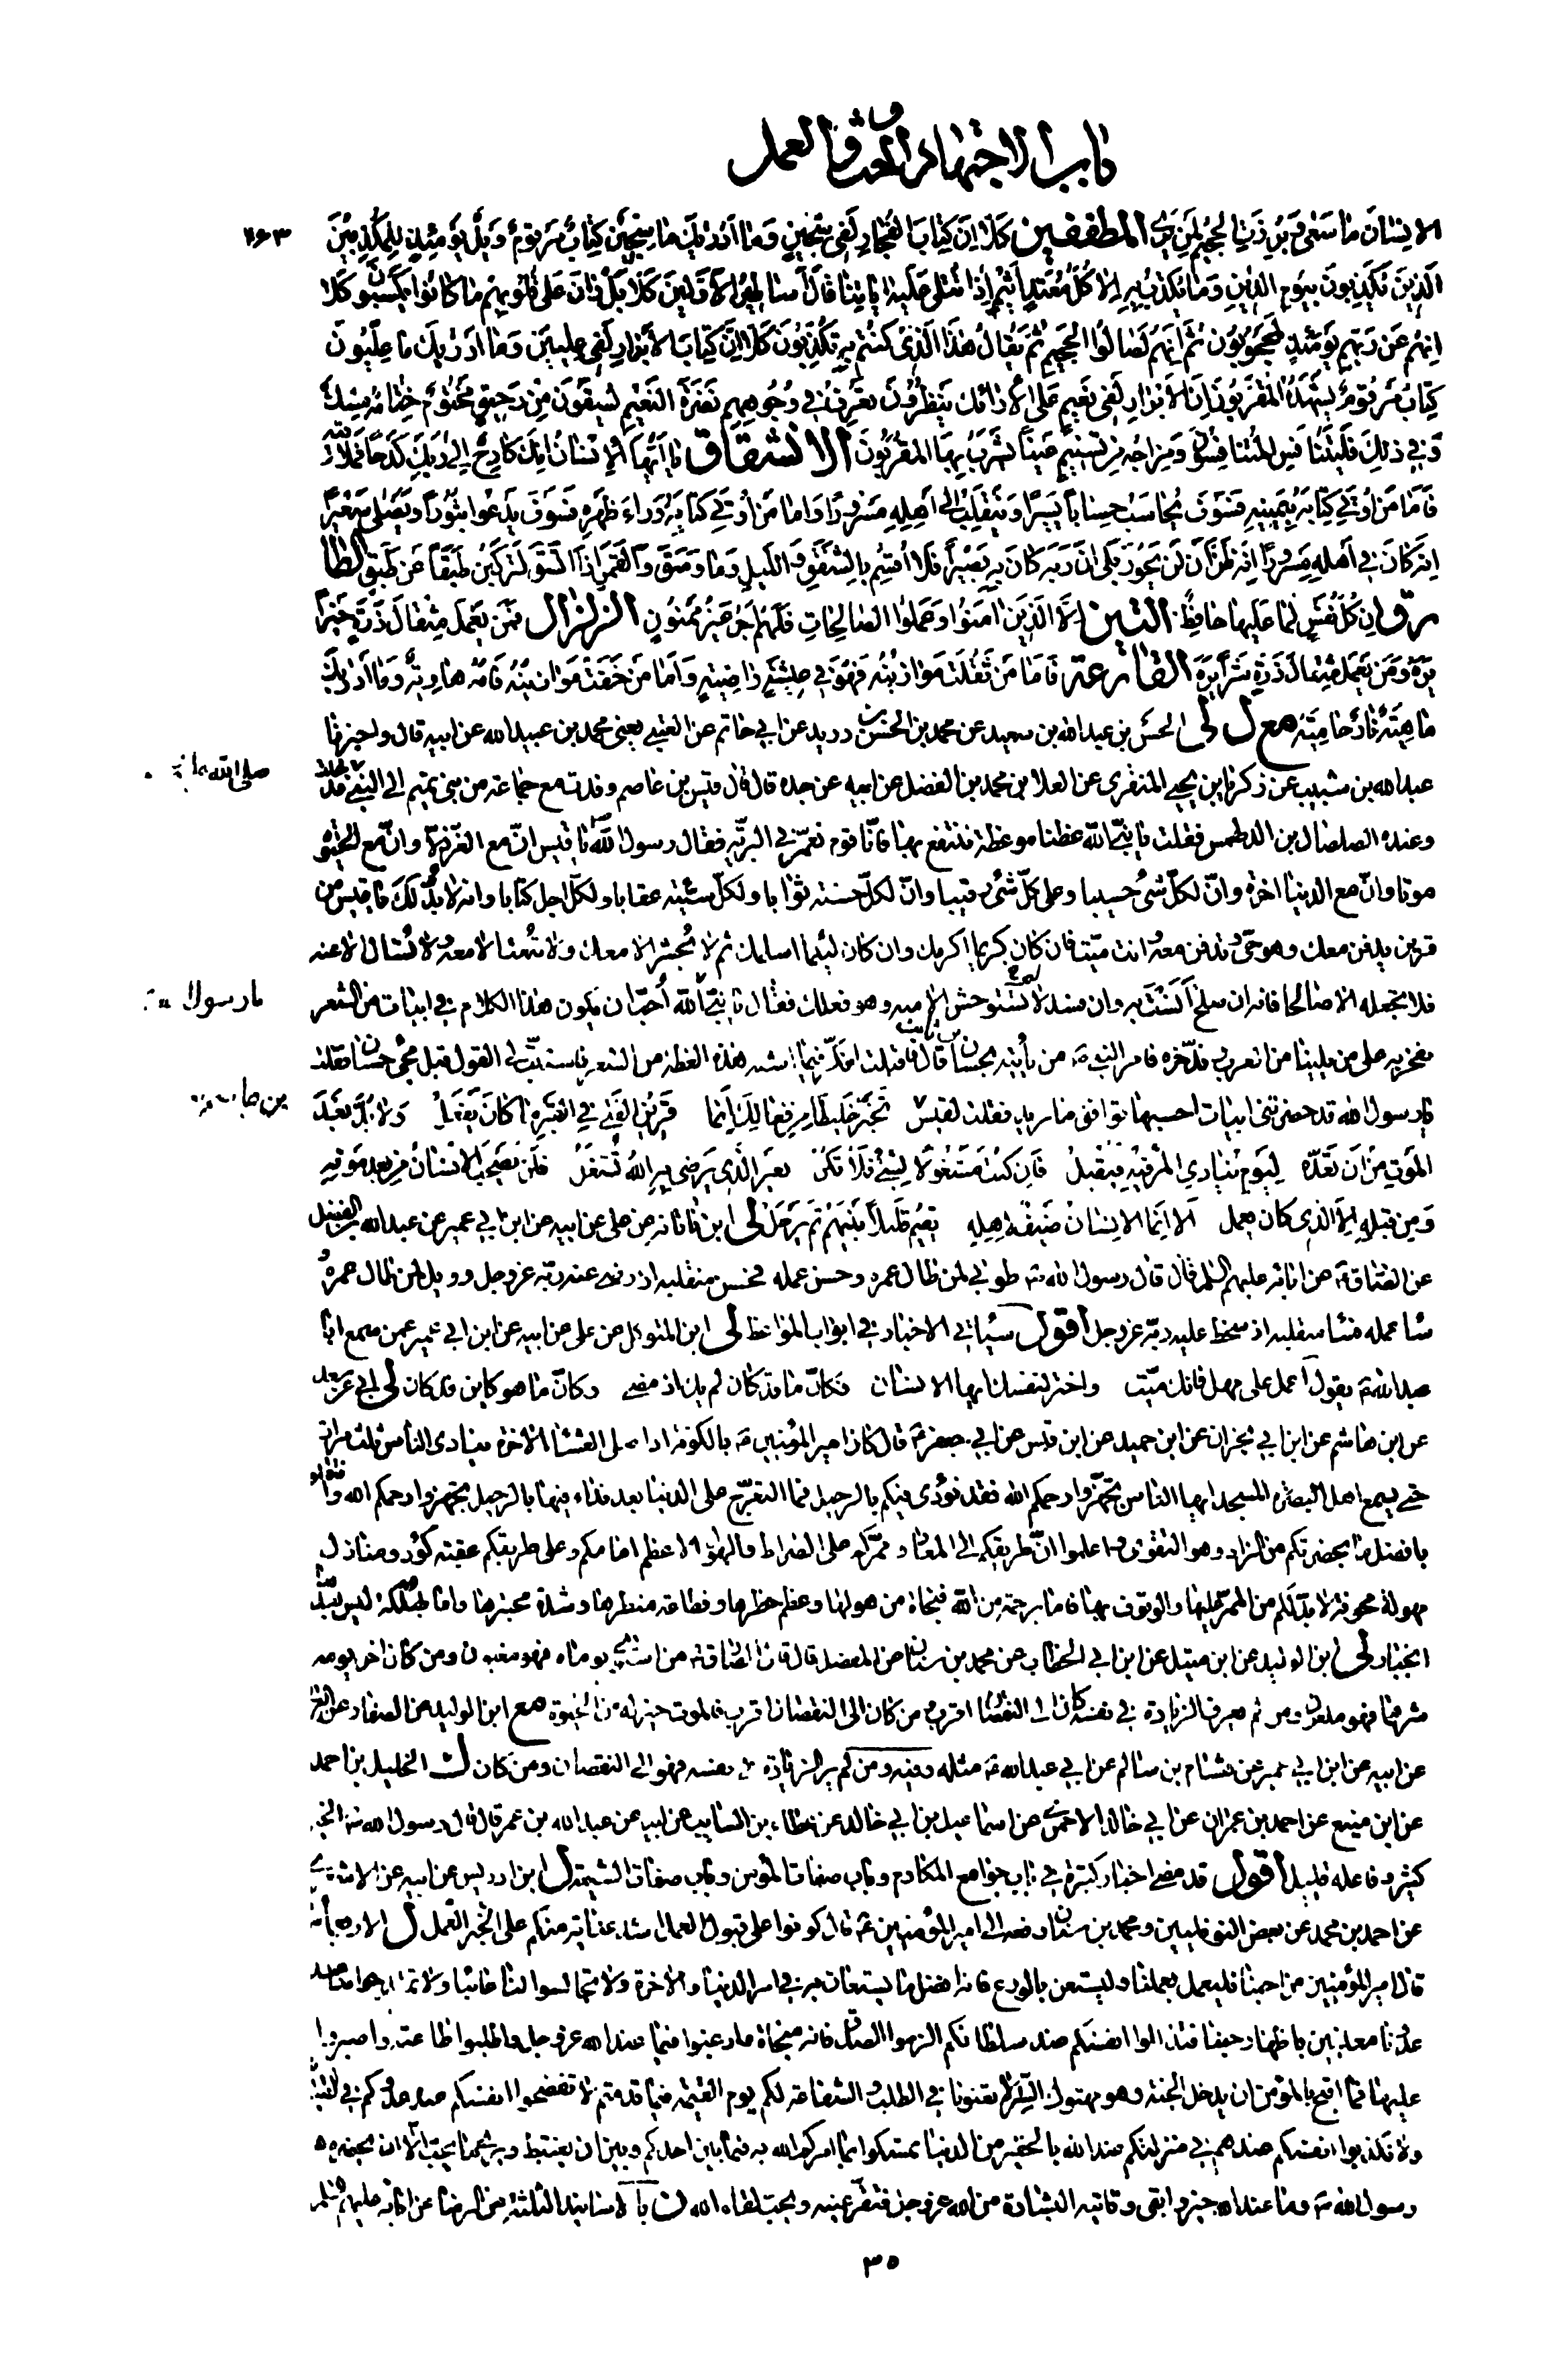 باب الاجتهاد والحث على العمل
١٦٣
الاِنسَانُ مَا سَعٰى وَبُرِّزَتِ الجَحِيمُ لِمَن يَرٰى المطففين كَلّا اِنَّ كِتَابَ الفُجّارِ لَفِي سِجِّينٍ وَمَا اَدْرٰيكَ مَا سِجِّينٌ كِتَابٌ مَرْقُومٌ وَيْلٌ يَوْمَئِذٍ لِلْمُكَذِّبِينَ
الَّذِينَ يُكَذِّبُونَ بِيَومِ الدِّينِ وَمَا يُكَذِّبُ بِهِ اِلَّا كُلُّ مُعْتَدٍ اَثِيمٍ اِذَا تُتْلٰى عَلَيْهِ اٰيَاتُنَا قَالَ اَسَاطِيرُ الاَوَّلِينَ كَلَّا بَلْ رَانَ عَلٰى قُلُوبِهِمْ مَا كَانُوا يَكْسِبُونَ كَلَّا
اِنَّهُمْ عَن رَبِّهِمْ يَوْمَئِذٍ لَمَحْجُوبُونَ ثُمَّ اِنَّهُمْ لَصَالُوا الجَحِيمِ ثُمَّ يُقَالُ هٰذَا الَّذِي كُنْتُم بِهِ تُكَذِّبُونَ كَلَّا اِنَّ كِتَابَ الاَبْرَارِ لَفِي عِلِّيِّينَ وَمَا اَدْرٰيكَ مَا عِلِّيُّونَ
كِتَابٌ مَرْقُومٌ يَشْهَدُهُ المُقَرَّبُونَ اِنَّ الاَبْرَارَ لَفِي نَعِيمٍ عَلَى الاَرَائِكِ يَنْظُرُونَ تَعْرِفُ فِي وُجُوهِهِم نَضْرَةَ النَّعِيمِ يُسْقَوْنَ مِنْ رَحِيقٍ مَخْتُومٍ خِتَامُهُ مِسْكٌ
وَفِي ذٰلِكَ فَلْيَتَنَافَسِ المُتَنَافِسُونَ وَمِزَاجُهُ مِن تَسْنِيمٍ عَيْنًا يَشْرَبُ بِهَا المُقَرَّبُونَ الانشقاق يَا اَيُّهَا الاِنْسَانُ اِنَّكَ كَادِحٌ اِلٰى رَبِّكَ كَدْحًا فَمُلَاقِيهِ
فَاَمَّا مَنْ اُوتِيَ كِتَابَهُ بِيَمِينِهِ فَسَوْفَ يُحَاسَبُ حِسَابًا يَسِيرًا وَيَنْقَلِبُ اِلٰى اَهْلِهِ مَسْرُورًا وَاَمَّا مَنْ اُوتِيَ كِتَابَهُ وَرَاءَ ظَهْرِهِ فَسَوْفَ يَدْعُوا ثُبُورًا وَيَصْلٰى سَعِيرًا
اِنَّهُ كَانَ فِي اَهْلِهِ مَسْرُورًا اِنَّهُ ظَنَّ اَنْ لَنْ يَحُورَ بَلٰى اِنَّ رَبَّهُ كَانَ بِهِ بَصِيرًا فَلَا اُقْسِمُ بِالشَّفَقِ وَاللَّيْلِ وَمَا وَسَقَ وَالقَمَرِ اِذَا اتَّسَقَ لَتَرْكَبُنَّ طَبَقًا عَن طَبَقٍ الطا
رق اِن كُلُّ نَفْسٍ لَمَّا عَلَيْهَا حَافِظٌ التين اِلَّا الَّذِينَ اٰمَنُوا وَعَمِلُوا الصَّالِحَاتِ فَلَهُمْ اَجْرٌ غَيْرُ مَمْنُونٍ الزلزال فَمَن يَعْمَلْ مِثْقَالَ ذَرَّةٍ خَيْرًا
يَرَهُ وَمَن يَعْمَلْ مِثْقَالَ ذَرَّةٍ شَرًّا يَرَهُ القارعة فَاَمَّا مَنْ ثَقُلَتْ مَوَازِينُهُ فَهُوَ فِي عِيشَةٍ رَاضِيَةٍ وَاَمَّا مَنْ خَفَّتْ مَوَازِينُهُ فَاُمُّهُ هَاوِيَةٌ وَمَا اَدْرٰيكَ
مَا هِيَهْ نَارٌ حَامِيَةٌ مع ل لى الحسن بن عبدالله بن سعيد عن محمد بن الحسن بن دريد عن ابي حاتم عن العتبي يعني محمد بن عبيدالله عن ابيه قال واخبرنا
عبدالله بن شبيب عن زكريا بن يحيى المنقري عن العلا بن محمد بن الفضل عن ابيه عن جده قال قال قيس بن عاصم وفدت مع جماعة من بني تميم الى النبي فدخلت
وعنده الصلصال بن الدلهمس فقلت يا نبي الله عظنا موعظة ننتفع بها فانا قوم نعبر في البرية فقال رسول الله يا قيس ان مع العز ذلا وان مع الحيوة
موتا وان مع الدنيا اخرة وان لكل شئ حسيبا وعلى كل شئ رقيبا وان لكل حسنة ثوابا ولكل سيئة عقابا ولكل اجل كتابا وانه لابد لك يا قيس من
قرين يدفن معك وهو حي وتدفن معه وانت ميت فان كان كريما اكرمك وان كان لئيما اسلمك ثم لا يحشر الا معك ولا تبعث الا معه ولا تسأل الا عنه
فلا تجعله الا صالحا فانه ان صلح اَنَستَ به وان فسد لا تستوحش الا منه وهو فعلك فقال يا نبي الله اُحب ان يكون هذا الكلام في ابيات من الشعر
نفخر به على من يلينا من العرب وندخره فامر النبي من يأتيه بحسان قال فاقبلت افكر فيما اشبه هذه العظة من الشعر فاستتب لي القول قبل مجئ حسان فقلت
يا رسول الله قد حضرتني ابيات احسبها توافق ما تريد فقلت لقيس تَخَيَّرْ خَلِيطًا مِن فِعَالِكَ اِنَّمَا قَرِينُ الفَتٰى فِي القَبْرِ مَا كَانَ يَفْعَلُ وَلَابُدَّ بَعْدَ
المَوتِ مِن اَن تُعِدَّهُ لِيَومٍ يُنَادي المَرءُ فِيهِ فَيُقْبِلُ فَاِن كُنتَ مَشْغُولًا بِشَئٍ فَلَا تَكُنْ بِغَيْرِ الَّذِي يَرْضٰى بِهِ اللهُ تُشْغَلُ فَلَنْ يَصْحَبَ الاِنسَانَ مِن بَعْدِ مَوْتِهِ
وَمِن قَبْلِهِ اِلَّا الَّذِي كَانَ يَعْمَلُ اَلَا اِنَّمَا الاِنسَانُ ضَيْفٌ لِاَهْلِهِ يُقِيمُ قَلِيلًا بَيْنَهُمْ ثُمَّ يَرْحَلُ لى ابن ناتانه عن علي عن ابيه عن ابن ابي عمير عن عبدالله بن الفضل
عن الصادق عن ابائه عليهم السلم قال قال رسول الله طوبى لمن طال عمره وحسن عمله فحسن منقلبه اذ رضى عنه ربه عزوجل وويل لمن طال عمره
ساء عمله فساء منقلبه اذ سخط عليه ربه عزوجل اقول سيأتي الاخبار في ابواب المواعظ لى ابن المتوكل عن علي عن ابيه عن ابن ابي عمير عمن سمع ابا
عبدالله يقول اعمل على مهل فانك ميت واختر لنفسك ايها الانسان فكأن ما قد كان لم يك اذ مضى وكأن ما هو كاين قد كان لى ابي عن سعد
عن ابن هاشم عن ابن ابي نجران عن ابن حميد عن ابن قيس عن ابي جعفر قال كان امير المؤمنين بالكوفة اذا صلى العشاء الاخرة ينادى الناس ثلث مرات
حتى يسمع اهل المسجد ايها الناس تجهزوا رحمكم الله فقد نودى فيكم بالرحيل فما التعرج على الدنيا بعد نداء فيها بالرحيل تجهزوا رحمكم الله وانتقلوا
بافضل ما بحضرتكم من الزاد وهو التقوى واعلموا ان طريقكم الى المعاد وممركم على الصراط والهول الاعظم امامكم وعلى طريقكم عقبة كؤد ومنازل
مهولة مخوفة لابد لكم من الممر عليها والوقوف بها فاما برحمة من الله فنجاة من هولها وعظم خطرها وفظاعة منظرها وشدة مختبرها واما بهلكة ليس بعدها
انجبار لى ابن الوليد عن ابن متيل عن ابن ابي الخطاب عن محمد بن سنان عن المفضل قال قال الصادق من استوى يوماه فهو مغبون ومن كان اخر يوميه
شرهما فهو ملعون ومن لم يعرف الزيادة في نفسه كان الى النقصان اقرب ومن كان الى النقصان اقرب فالموت خير له من الحيوة مع ابن الوليد عن الصفار عن
عن ابيه عن ابن ابي عمير عن هشام بن سالم عن ابي عبدالله مثله وفيه ومن لم ير الزيادة في نفسه فهو الى النقصان ومن كان ل الخليل بن احمد
عن ابن منيع عن احمد بن عمران عن ابي خالد الاحمر عن اسماعيل بن ابي خالد عن عطاء بن السايب عن ابيه عن عبدالله بن عمر قال قال رسول الله الخير
كثير وفاعله قليل اقول قد مضى اخبار كثيرة في باب جوامع المكارم وباب صفات المؤمن وباب صفات الشيعة ل ابن ادريس عن ابيه عن الاشعري
عن احمد بن محمد عن بعض النوفليين ومحمد بن سنان رفعه الى امير المؤمنين قال كونوا على قبول العمل اشد عناية منكم على العمل ل الاربعمائة
قال امير المؤمنين من احبنا فليعمل بعملنا وليستعن بالورع فانه افضل ما يستعان به في امر الدنيا والاخرة ولا تجالسوا لنا عائبا ولا تمتدحوا بنا عند
عدونا معلنين باظهار حبنا فتذللوا انفسكم عند سلطانكم الزموا الصدق فانه منجاة وارغبوا فيما عند الله عزوجل واطلبوا طاعته واصبروا
عليها فما اقبح بالمؤمن ان يدخل الجنة وهو مهتوك الستر لا تعنونا في الطلب والشفاعة لكم يوم القيمة فيما قدمتم لا تفضحوا انفسكم عند عدوكم في القيمة
ولا تكذبوا انفسكم عندهم في منزلتكم عند الله بالحقير من الدنيا تمسكوا بما امركم الله به فما بين احدكم وبين ان يغتبط ويرى ما يحب الا ان يحضره
رسول الله وما عند الله خير وابقى وتاتيه البشارة من الله عزوجل فتقر عينه ويحب لقاء الله ن بالاسانيد الثلثة عن الرضا عن ابائه عليهم السلم
صلى الله عليه
يا رسول
٣٥